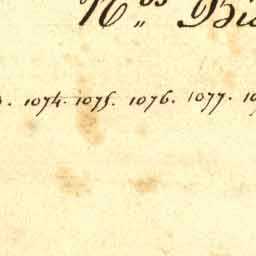 N.os Bi
1074. 1075. 1076. 1077.